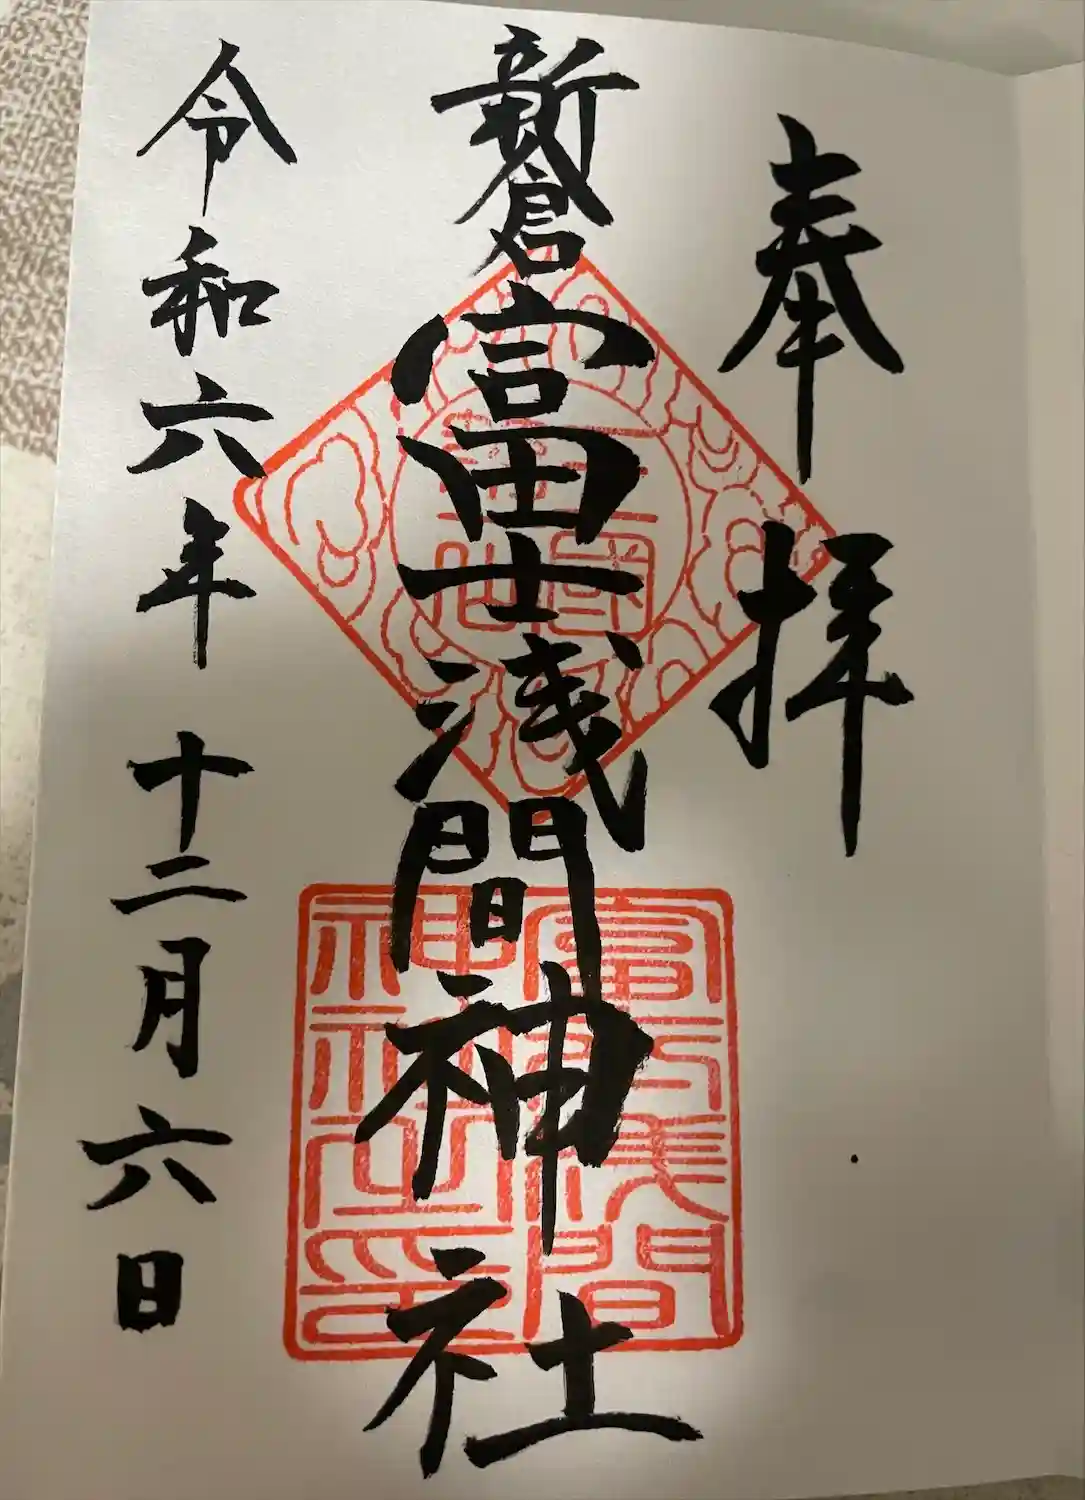 奉拝
新倉富士浅間神社
令和六年十二月六日
冨士浅間
神社之印